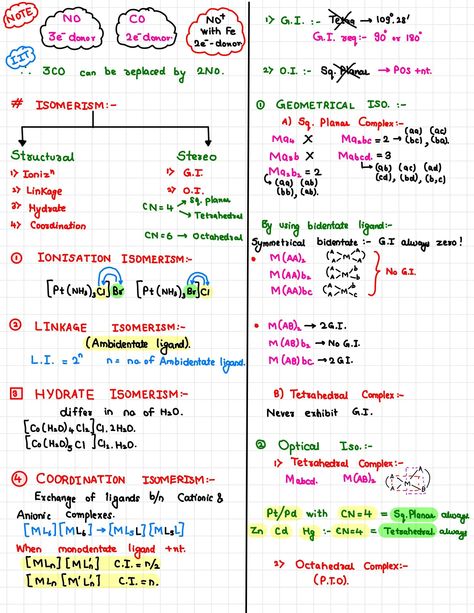 NOTE
NO
3e⁻ donor
CO
2e⁻ donor
NO⁺
with Fe
2e⁻-donor
IIT
∴ 3CO can be replaced by 2NO.
# ISOMERISM:-
Structural
1) Ionizⁿ
2) Linkage
3) Hydrate
4) Coordination
Stereo
1) G.I.
2) O.I.
CN=4 → Sq. planar
→ Tetrahedral
CN=6 → Octahedral
① IONISATION ISOMERISM:-
[Pt(NH₃)₃Cl]Br [Pt(NH₃)₃Br]Cl
② LINKAGE ISOMERISM:-
(Ambidentate ligand).
L.I. = 2ⁿ n = no of Ambidentate ligand.
3 HYDRATE ISOMERISM:-
differ in no of H₂O.
[Co(H₂O)₄Cl₂]Cl.2H₂O.
[Co(H₂O)₅Cl]Cl₂.H₂O.
④ COORDINATION ISOMERISM:-
Exchange of ligands b/n Cationic &
Anionic Complexes.
[ML₄][ML₆] → [ML₅L][ML₅L]
When monodentate ligand +nt.
[MLn][MLn] C.I. = n/2
[MLn][M'L'n] C.I. = n.
1) G.I. :- Tetra → 109°.28'
G.I. req:- 90° or 180°
2) O.I. :- Sq. Planar → POS +nt.
① GEOMETRICAL ISO. :-
A) Sq. Planar Complex:-
Ma₄ X
Ma₃b X
Ma₂b₂ = 2
(aa) (bb)
(ab), (ab)
Ma₂bc = 2 → (aa) (ac)
(bc), (ba).
Mabcd. = 3
(ab) (ac) (ad)
(cd), (bd), (b,c)
By using bidentate ligand:-
Symmetrical bidentate:- G.I always zero!
• M(AA)₂
M(AA)b₂
M(AA)bc
No G.I.
• M(AB)₂ → 2G.I.
M(AB)b₂ → No G.I.
M(AB)bc → 2G.I.
B) Tetrahedral Complex:-
Never exhibit G.I.
② Optical Iso.:-
1) Tetrahedral Complex:-
Mabcd. M(AB)₂
Pt/Pd with CN=4 = Sq.Planar always
Zn Cd Hg :- CN=4 = Tetrahedral always
2) Octahedral Complex:-
(P.T.O).